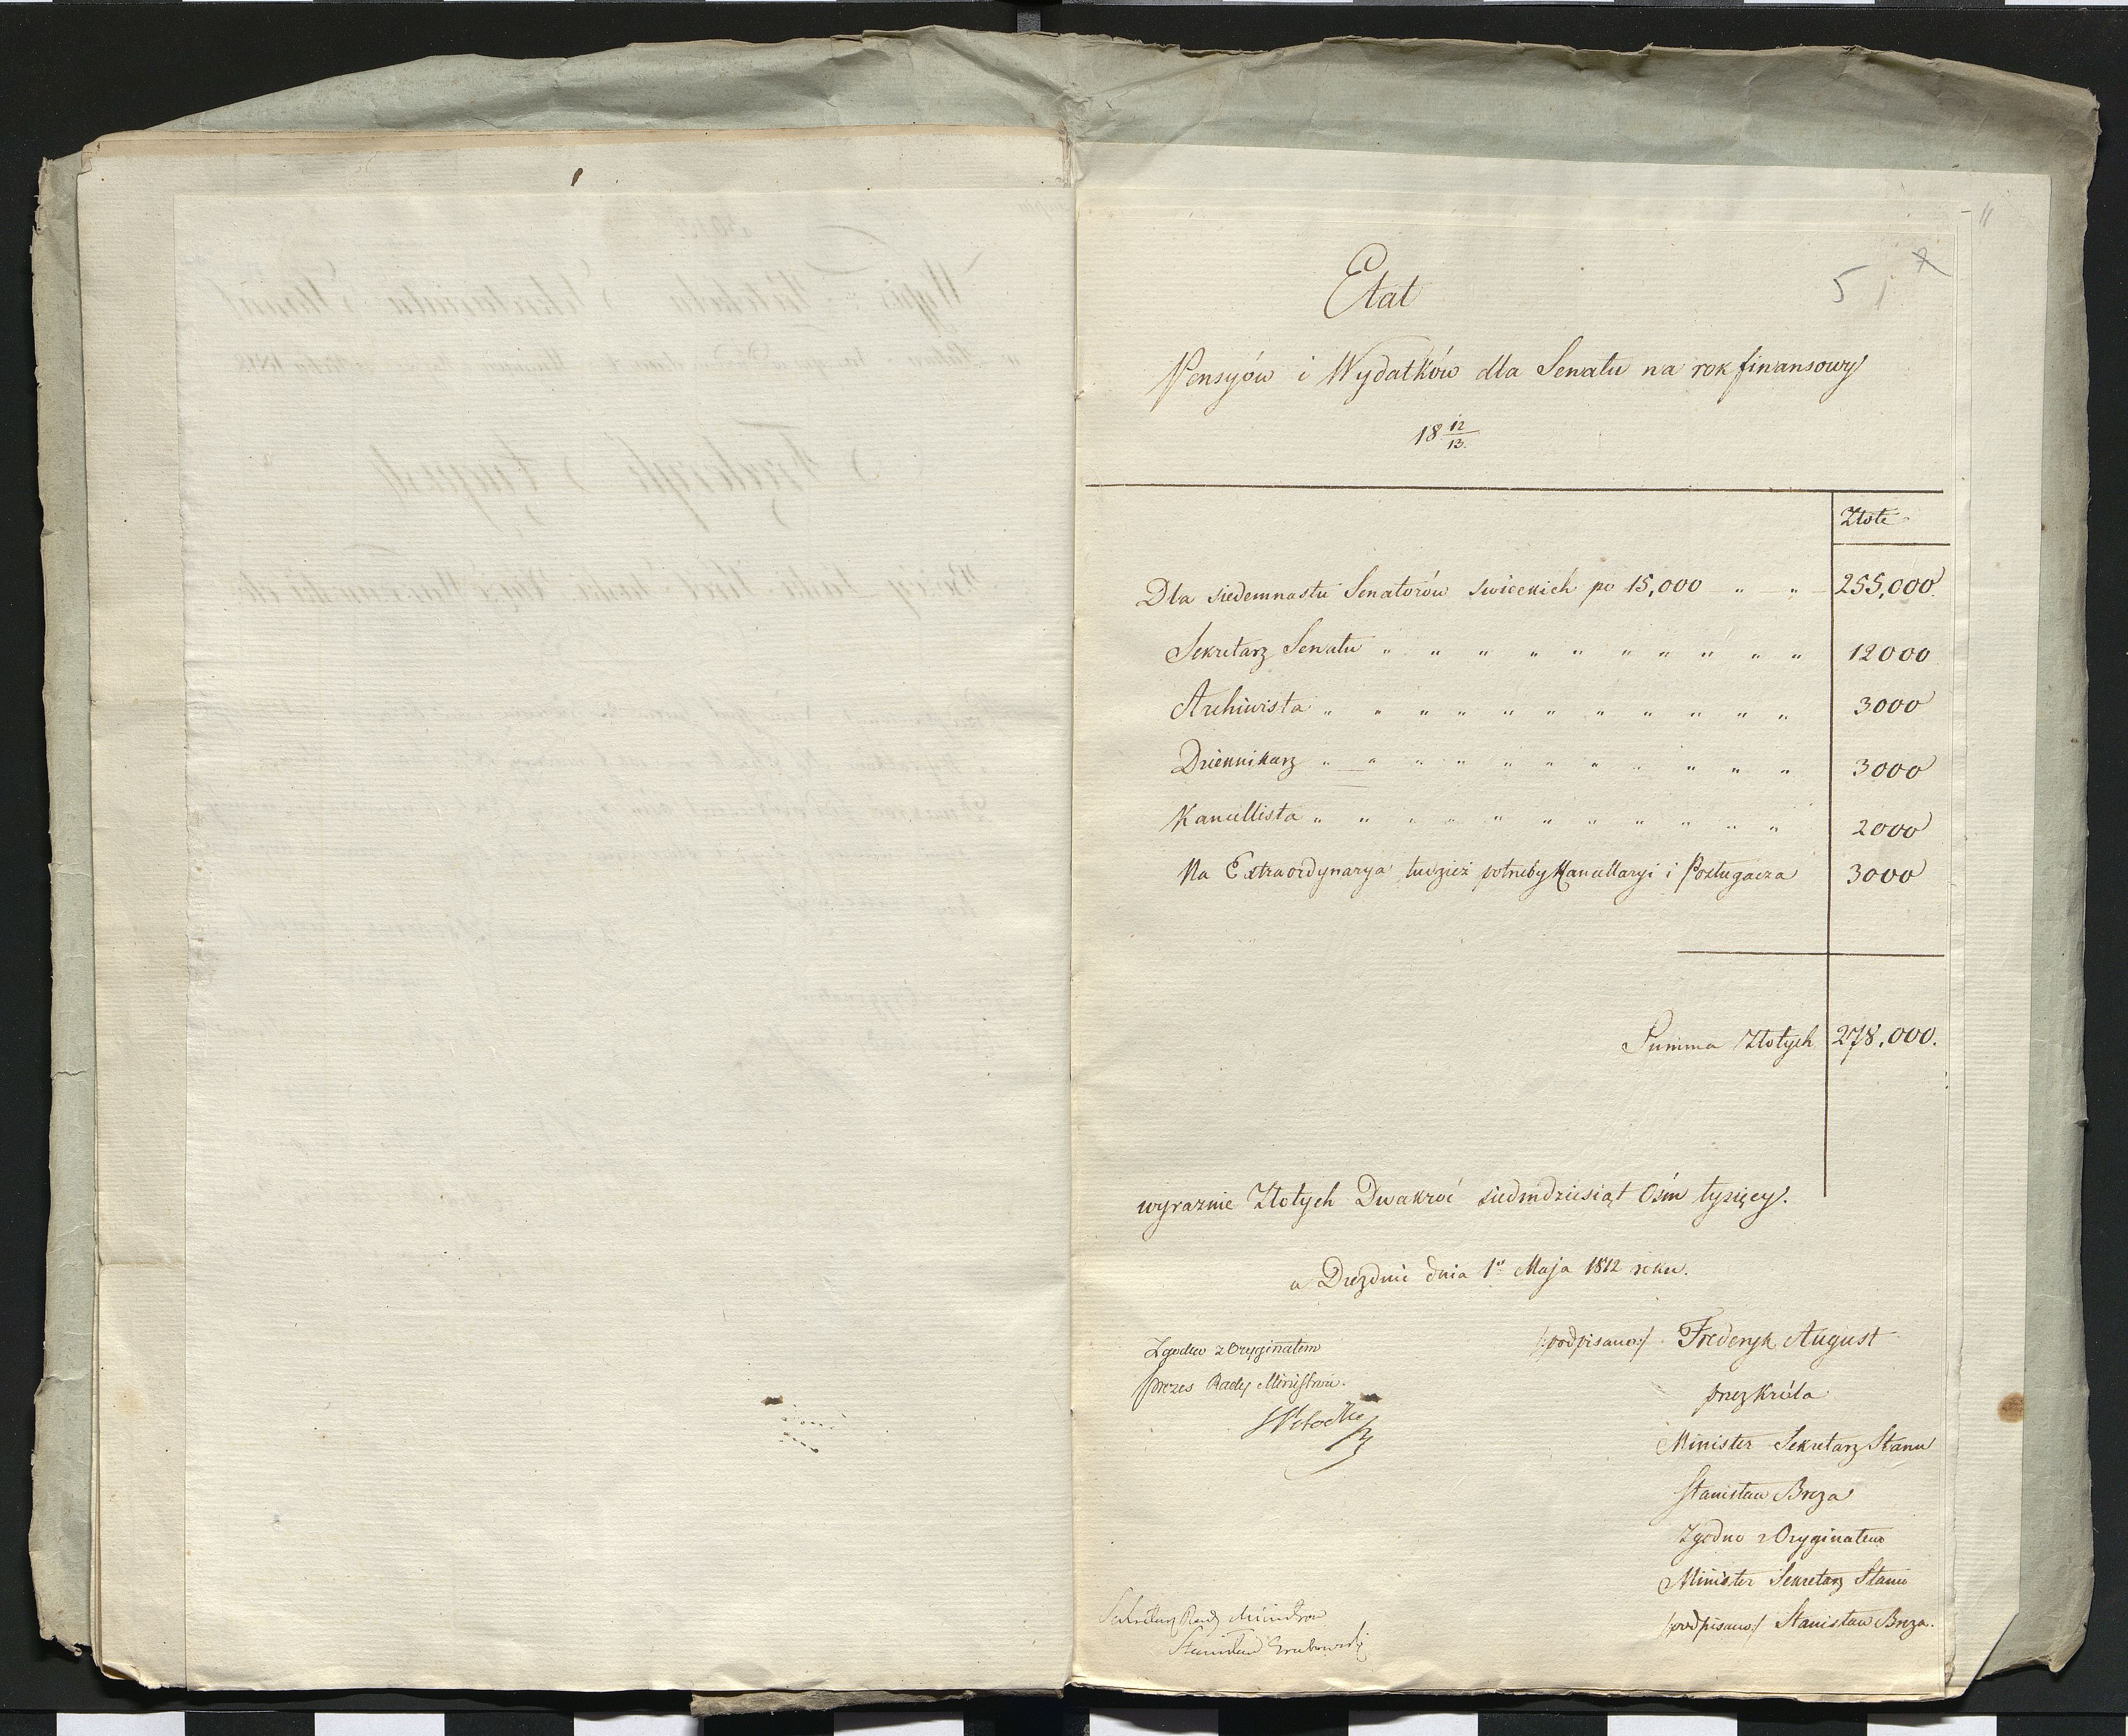 5
Etat
Pensyów i Wydatków dla Senatu na rok finansowy
18 12/13.
Złote
Dla siedemnastu Senatorów swieckich po 15,000 " " 255,000.
Sekretarz Senatu " " " " " " " " " " 12000
Archiwista " " " " " " " " " " " 3000
Dziennikarz " " " " " " " " " " " 3000
Kancellista " " " " " " " " " " " 2000
Na Extraordynarya tudzież potrzeby Kancellaryi i Posługacza 3000
Summa Złotych 278,000.
wyraznie Złotych Dwakroć siedmdziesiąt Ośm tysięcy.
w Dreznie dnia 1o Maja 1812 roku.
/:podpisano:/ Frederyk August
Zgodno z Oryginałem
Prezes Rady Ministrów.
przez Króla
Minister Sekretarz Stanu
Stanisław Breza
Zgodno z Oryginałem
Minister Sekretarz Stanu
/:podpisano:/ Stanisław Breza.
Sekretarz Rady Ministrów
Stanisław Grabowski